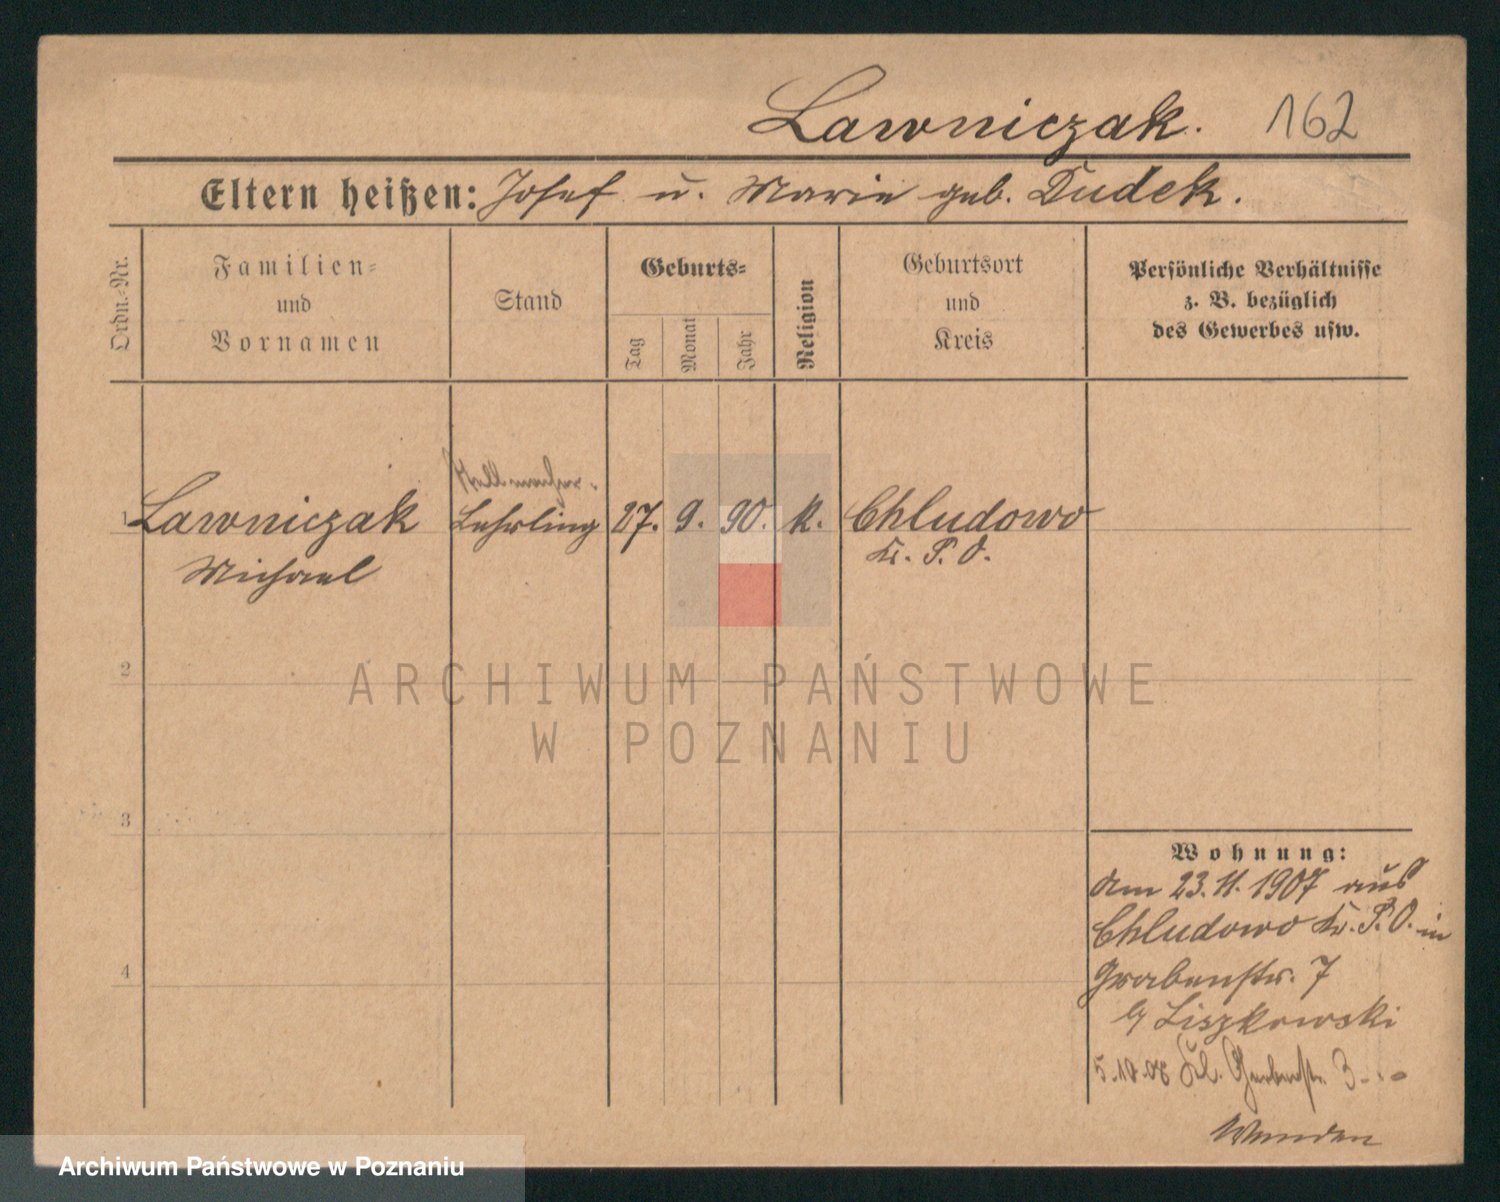 Lawniczak. 162
Eltern heißen: Josef u. Marie geb. Dudek.
Ordn.-Nr.
Familien-
und
Vornamen
Stand
Geburts-
Tag
Monat
Jahr
Religion
Geburtsort
und
Kreis
Persönliche Verhältnisse
z. B. bezüglich
des Gewerbes usw.
Stellmacher-
1 Lawniczak Lehrling 27. 9. 90. k. Chludowo
Michael Kr. P. O.
2
ARCHIWUM PAŃSTWOWE
W POZNANIU
3
4
Wohnung:
Am 23.11.1907 aus
Chludowo Kr. P. O. in
Grabenstr. 7
b/ Liszkowski
5.10.08 Kl. Gerberstr. 3
Archiwum Państwowe w Poznaniu